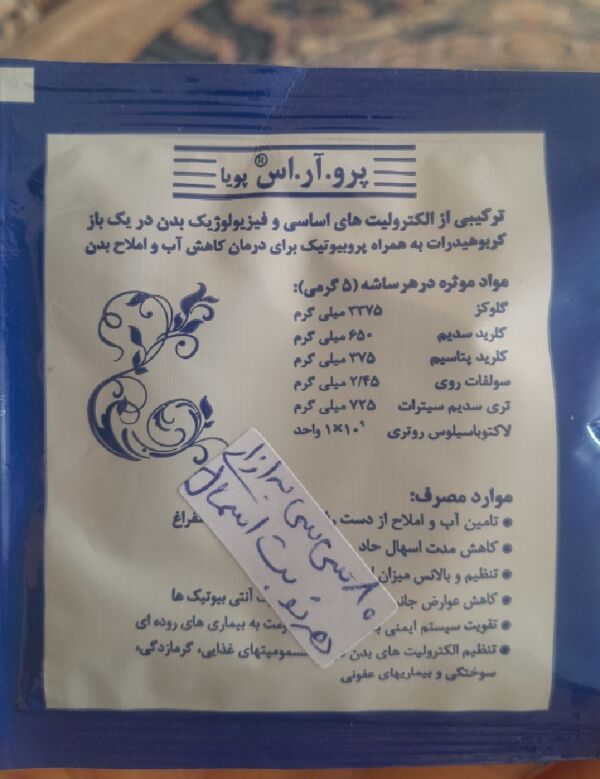 پرو.آر.اس® پویا
ترکیبی از الکترولیت های اساسی و فیزیولوژیک بدن در یک باز
کربوهیدرات به همراه پروبیوتیک برای درمان کاهش آب و املاح بدن
مواد موثره در هر ساشه (۵ گرمی):
گلوکز ۳۳۷۵ میلی گرم
کلرید سدیم ۶۵۰ میلی گرم
کلرید پتاسیم ۳۷۵ میلی گرم
سولفات روی ۲/۴۵ میلی گرم
تری سدیم سیترات ۷۲۵ میلی گرم
لاکتوباسیلوس روتری ۱×۱۰۹ واحد
موارد مصرف:
● تامین آب و املاح از دست
● کاهش مدت اسهال حاد
● تنظیم و بالانس میزان
● کاهش عوارض آنتی بیوتیک ها
● تقویت سیستم ایمنی به بیماری های روده ای
● تنظیم الکترولیت های بدن غذایی، گرمازدگی،
سوختگی و بیماریهای عفونی
۸۰ سی سی به ازای
هر نوبت اسهال